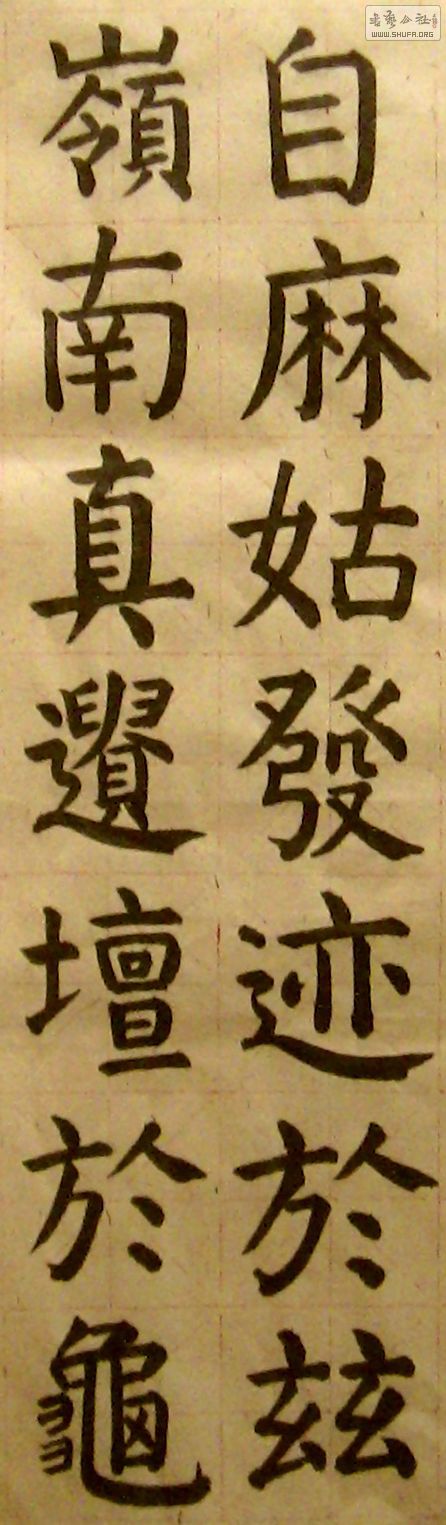 自麻姑發迹於茲
嶺南真遺壇於龜
書藝公社
WWW.SHUFA.ORG